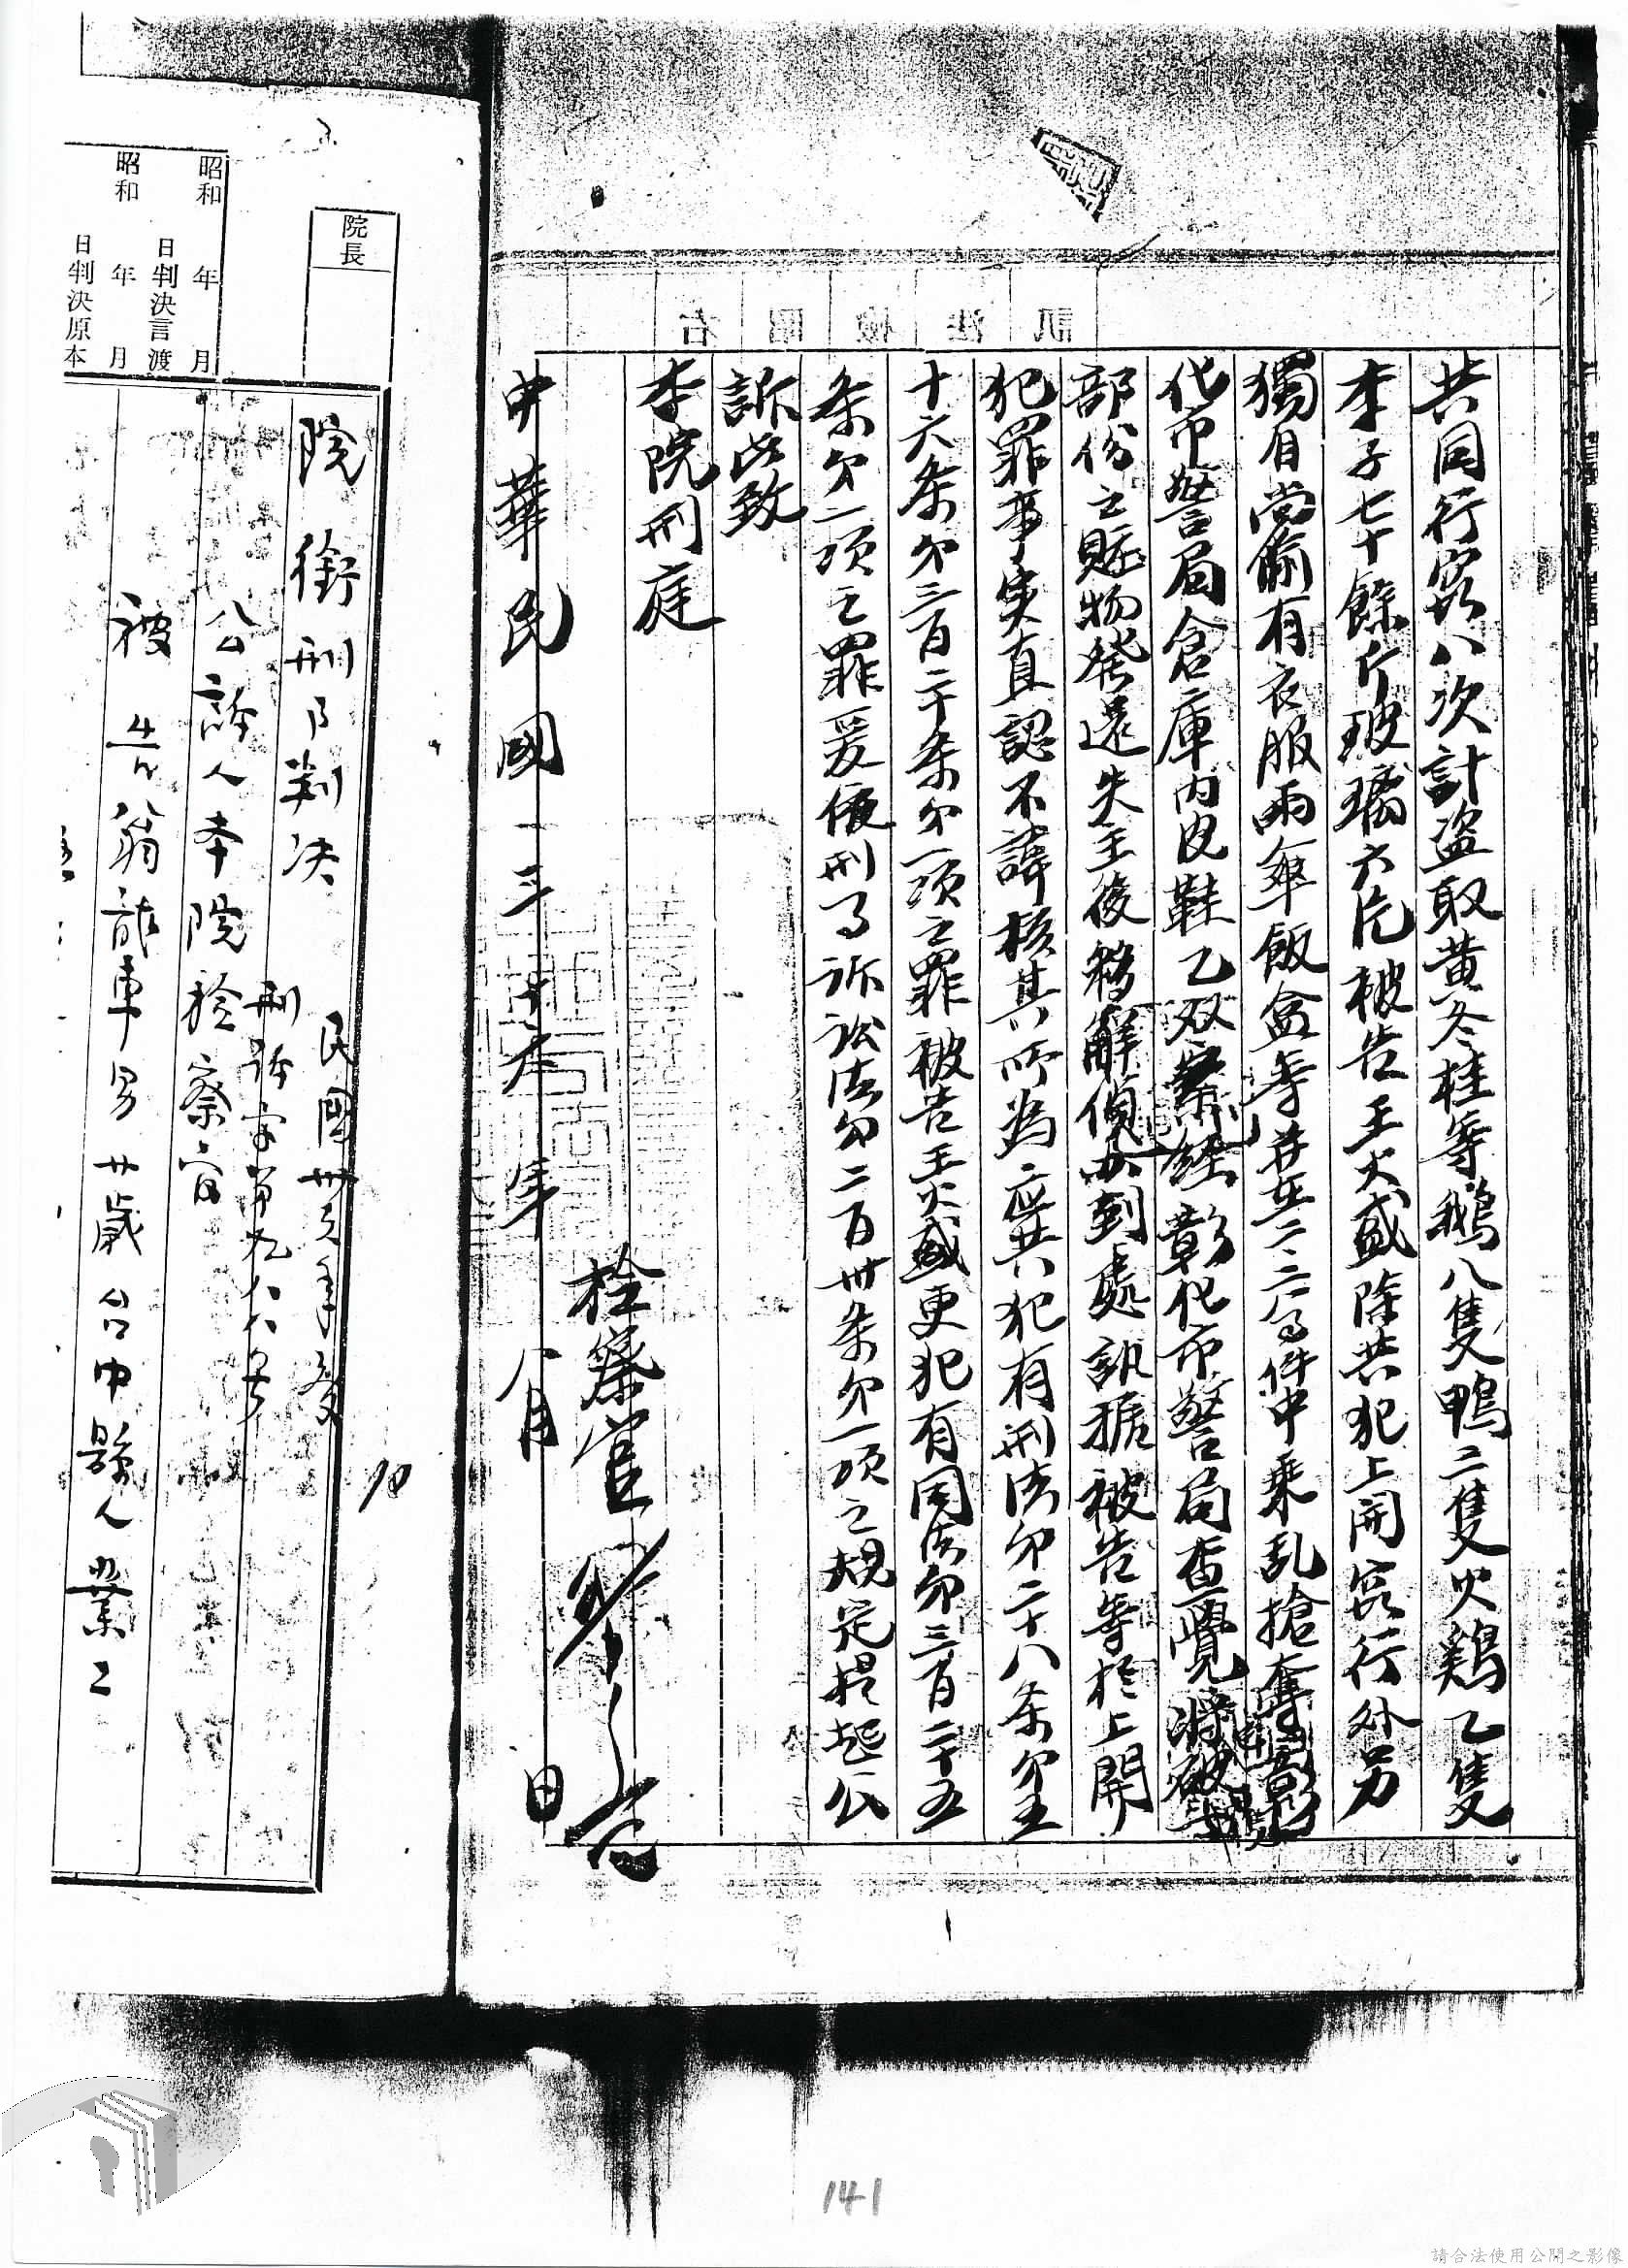 共同行窃八次計盗取黄冬桂等鵝八隻鴨二隻火鷄乙隻
李子七十餘斤玻璃六片被告王火盛除共犯上開窃行外另
獨自尚偷有衣服雨傘飯盒等并在二二八事件中乘乱搶奪彰
化市警局倉庫内皮鞋乙双案経彰化市警局查覺將
部份之贓物発還失主後移解偵办到處訊据被告等於上開
犯罪事実直認不諱核其所為應共犯有刑法第二十八条第五
十六条第三百二十条第一項之罪被告王火盛更犯有同法第三百二十五
条第一項之罪爰依刑事訴訟法第二百卅条第一項之規定提起公
訴此致
本院刑庭
檢察官
中華民國三十六年八月日
院長
院銜刑事判决
民國卅六年
刑訴字第九八六号
公訴人本院検察官
被告翁龍車男廿歲台中縣人業工
昭和 年 月 日判決言渡
昭和 年 月 日判決原本
141
請合法使用公開之影像